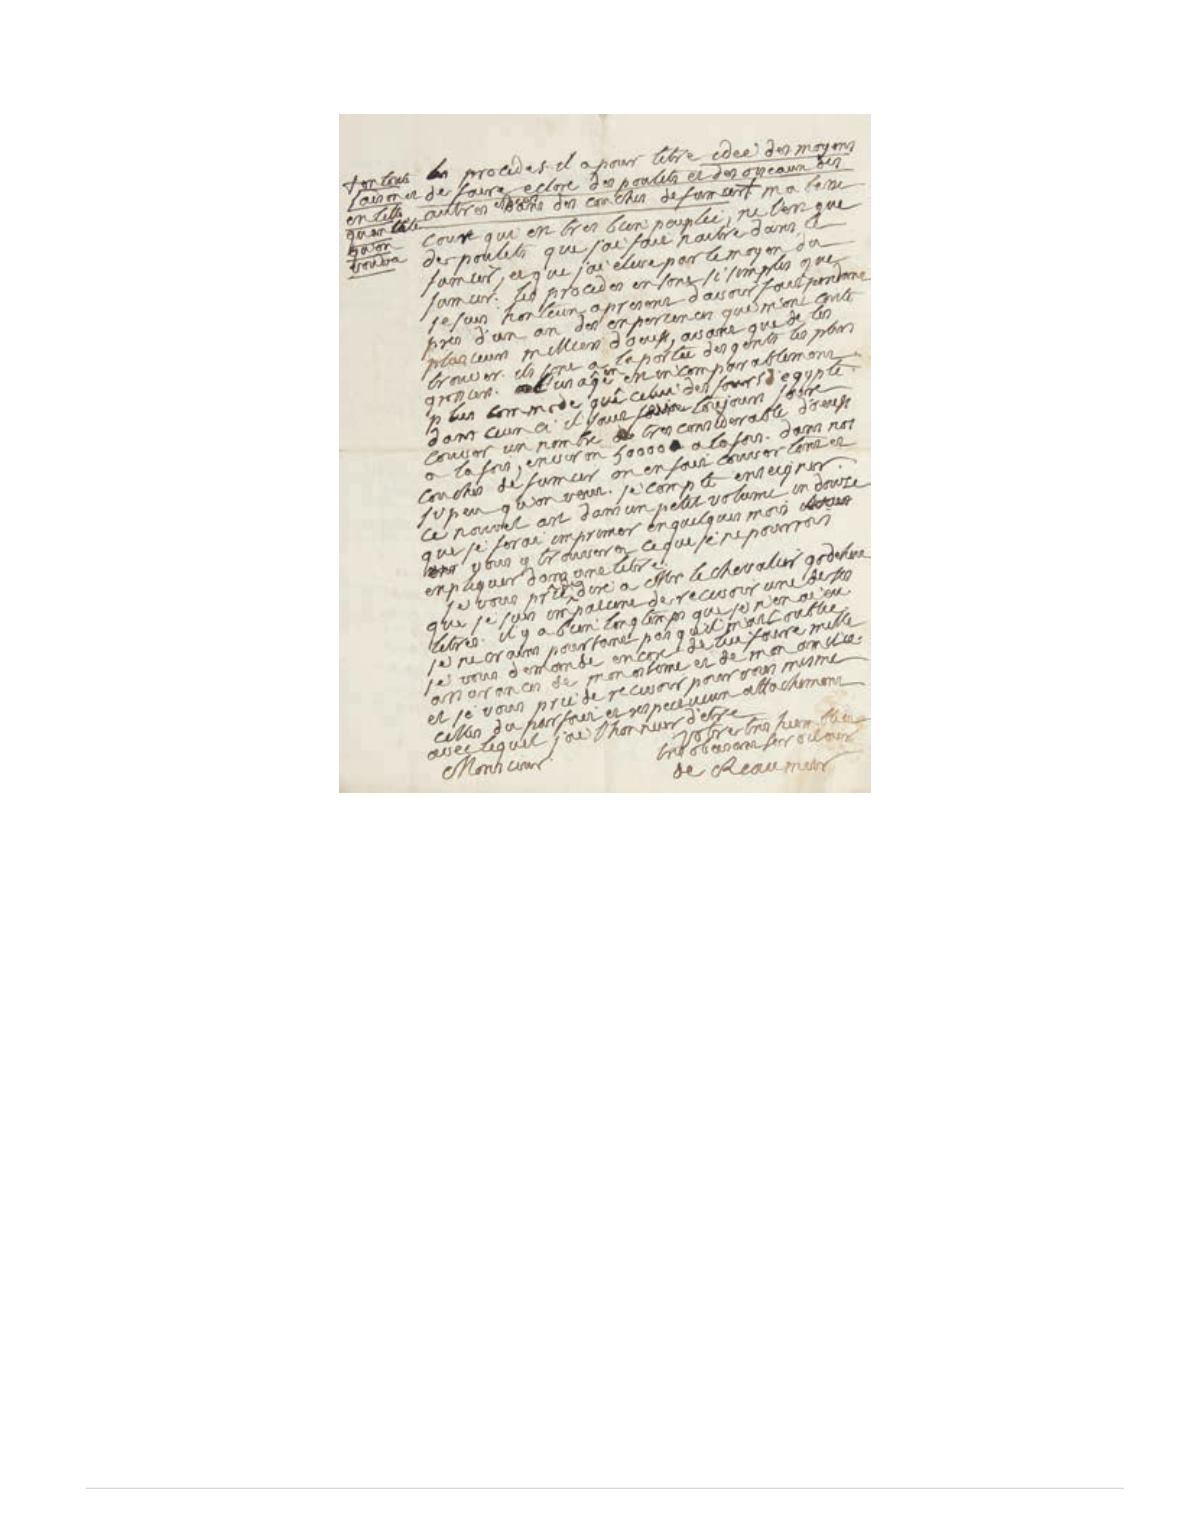 les procedes. il a pour titre idée des moyens
de faire eclore des poulets et des oiseaux des
autres especes dans des couches de fumier + ma basse
cour qui est tres bien peuplée, ne l'est que
des poulets que j'ai fait naitre dans le
fumier, et que j'ai elevé par le moyen du
fumier. les procedes en sont si simples que
je suis honteux apresent d'avoir fait pendant
pres d'un an des experiences qui m'ont couté
plusieurs milliers d'oeufs, avant que de les
trouver. ils sont a la portée des gents les plus
grossiers. l'usage en est incomparablement
plus commode que celui des fours d'egypte.
dans ceux ci il faut toujours faire
couver un nombre tres considerable d'oeufs
a la fois, environ 50000 a la fois. dans nos
couches de fumier on en fait couver tant et
si peu qu'on veut. je compte enseigner
ce nouvel art dans un petit volume in douze
que je ferai imprimer en quelques mois
vous y trouveres ce que je ne pourrois
expliquer dans une lettre.
je vous prie dire a Mr le chevalier godeheu
que je suis impatient de recevoir une de ses
lettres. il y a bien longtemps que je n'en ai eu
je ne crains pourtant pas qu'il m'ait oublié
je vous demande encore de lui faire mille
assurances de mon estime et de mon amitié.
et je vous prie de recevoir pour vous mesme
celles du parfait et respectueux attachement
avec lequel j'ai l'honneur d'etre
Monsieur
votre tres humble
tres obeissant serviteur
de Reaumur
+ en toute
saison et
en telle
quantité
qu'on
voudra